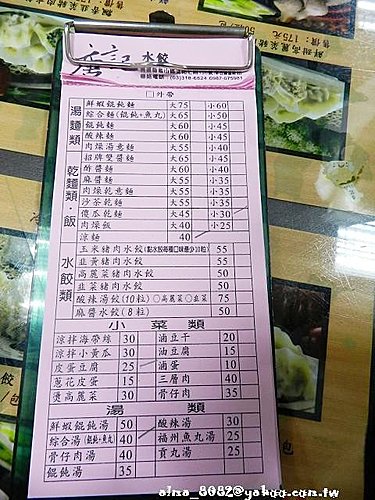 唐記 水餃
□外帶
湯麵類
鮮蝦餛飩麵 大75 小60
綜合麵(餛飩·魚丸) 大65 小50
餛飩麵 大60 小45
酸辣麵 大60 小45
肉燥湯意麵 大55 小40
乾麵類·飯
招牌雙醬麵 大65 小45
酢醬麵 大60 小40
麻醬麵 大55 小35
肉燥乾意麵 大55 小35
沙茶乾麵 大55 小35
傻瓜乾麵 大45 小30
肉燥飯 大40 小25
涼麵 40
水餃類
玉米豬肉水餃(點水餃每種口味最少10粒) 55
韭黃豬肉水餃 55
高麗菜豬肉水餃 50
韭菜豬肉水餃 50
酸辣湯餃(10粒)○高麗菜○韭菜 75
麻醬水餃(8粒) 50
小菜類
涼拌海帶絲 30 滷豆干 20
涼拌小黃瓜 30 油豆腐 15
皮蛋豆腐 25 滷蛋 10
蔥花皮蛋 15 三層肉 40
燙高麗菜 30 骨仔肉 35
湯類
鮮蝦餛飩湯 50 酸辣湯 30
綜合湯(餛飩·魚丸) 40 福州魚丸湯 25
骨仔肉湯 45 貢丸湯 25
餛飩湯 35
售價:175元
alma_8082@yahoo.com.tw